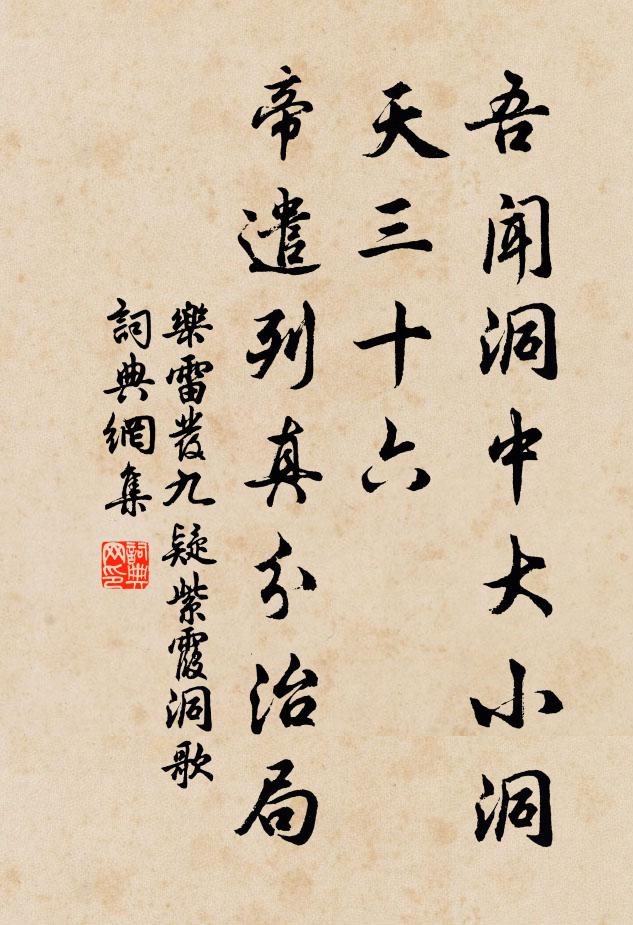 吾聞洞中大小洞
天三十六
帝遣列真分治局
樂雷發九疑紫霞洞歌
詞典網集
詞典网印